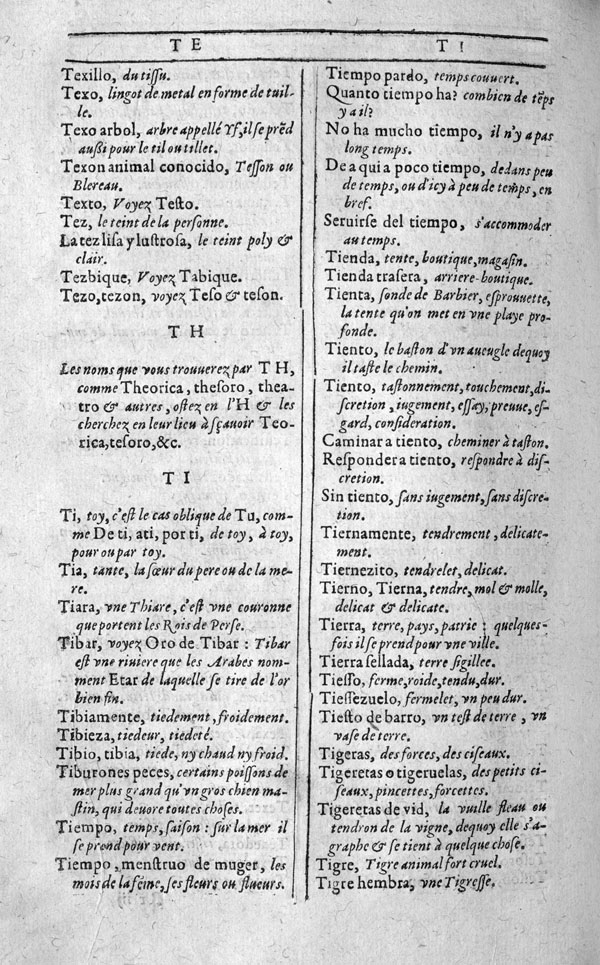 TE
TI
Texillo, du tissu.
Texo, lingot de metal en forme de tuil-
le.
Texo arbol, arbre appellé Yf, il se prẽd
außi pour le til ou tillet.
Texon animal conocido, Tesson ou
Blereau.
Texto, Voyez Testo.
Tez, le teint de la personne.
La tez lisa y lustrosa, le teint poly &
clair.
Tezbique, Voyez Tabique.
Tezo, tezon, voyez Teso & teson.
TH
Les noms que vous trouuerez par TH,
comme Theorica, thesoro, thea-
tro & autres, ostez en l'H & les
cherchez en leur lieu à sçauoir Teo-
rica, tesoro, &c.
TI
Ti, toy, c'est le cas oblique de Tu, com-
me De ti, ati, por ti, de toy, à toy,
pour ou par toy.
Tia, tante, la sœur du pere ou de la me-
re.
Tiara, vne Thiare, c'est vne couronne
que portent les Rois de Perse.
Tibar, voyez Oro de Tibar : Tibar
est vne riuiere que les Arabes nom-
ment Etar de laquelle se tire de l'or
bien fin.
Tibiamente, tiedement, froidement.
Tibieza, tiedeur, tiedeté.
Tibio, tibia, tiede, ny chaud ny froid.
Tiburones peces, certains poissons de
mer plus grand qu'vn gros chien ma-
stin, qui deuore toutes choses.
Tiempo, temps, saison : sur la mer il
se prend pour vent.
Tiempo, menstruo de muger, les
mois de la fẽme, ses fleurs ou flueurs.
Tiempo pardo, temps couuert.
Quanto tiempo ha? combien de tẽps
y a il?
No ha mucho tiempo, il n'y a pas
long temps.
De a qui a poco tiempo, dedans peu
de temps, ou d'icy à peu de temps, en
bref.
Seruirse del tiempo, s'accommoder
au temps.
Tienda, tente, boutique, magasin.
Tienda trasera, arriere-boutique.
Tienta, sonde de Barbier, esprouuette,
la tente qu'on met en vne playe pro-
fonde.
Tiento, le baston d'vn aueugle dequoy
il taste le chemin.
Tiento, tastonnement, touchement, di-
scretion, iugement, essay, preuue, es-
gard, consideration.
Caminar a tiento, cheminer à taston.
Responder a tiento, respondre à dis-
cretion.
Sin tiento, sans iugement, sans discre-
tion.
Tiernamente, tendrement, delicate-
ment.
Tiernezito, tendrelet, delicat.
Tierno, Tierna, tendre, mol & molle,
delicat & delicate.
Tierra, terre, pays, patrie : quelques-
fois il se prend pour vne ville.
Tierra sellada, terre sigillee.
Tiesso, ferme, roide, tendu, dur.
Tiessezuelo, fermelet, vn peu dur.
Tiesto de barro, vn test de terre, vn
vase de terre.
Tigeras, des forces, des ciseaux.
Tigeretas o tigeruelas, des petits ci-
seaux, pincettes, forcettes.
Tigeretas de vid, la vuille fleau ou
tendron de la vigne, dequoy elle s'a-
graphe & se tient à quelque chose.
Tigre, Tigre animal fort cruel.
Tigre hembra, vne Tigresse.